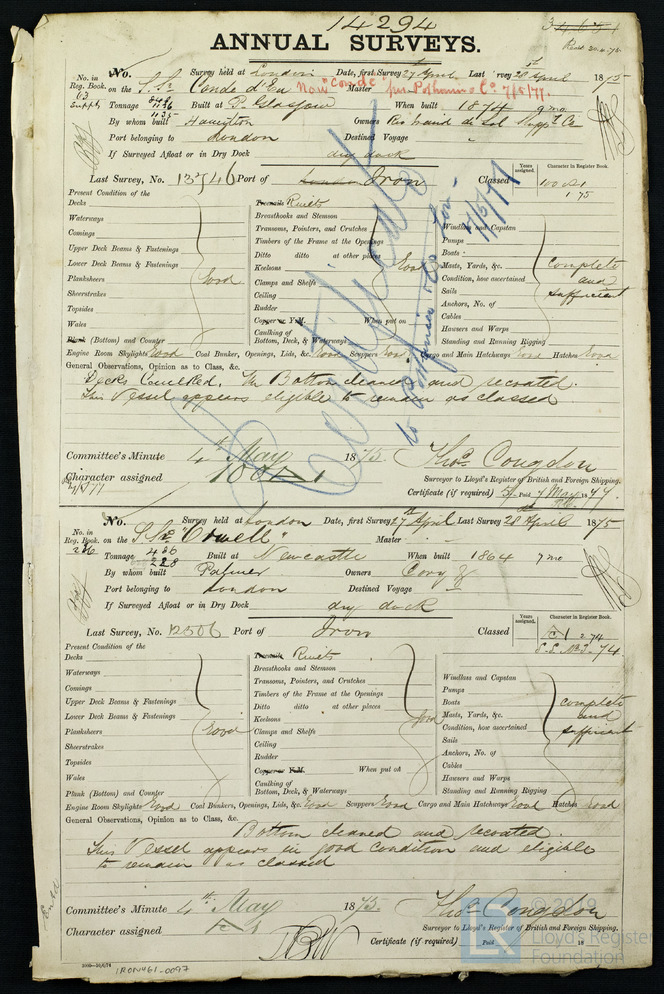 14294
ANNUAL SURVEYS.
No. in Reg. Book. 63 Supplt
No. Survey held at London Date, first Survey 27 April Last Survey 28th April 1875
on the S.S. Conde d'Eu Now "Conde" Master
7/5/77.
Tonnage Built at P. Glasgow When built 1874 9 mo
By whom built Owners
Port belonging to London Destined Voyage
If Surveyed Afloat or in Dry Dock dry dock
Last Survey, No. 13746 Port of London Iron Classed
Years assigned. Character in Register Book.
100 A1
1 75
Present Condition of the
Decks
Waterways
Comings
Upper Deck Beams & Fastenings
Lower Deck Beams & Fastenings
Planksheers Good
Sheerstrakes
Topsides
Wales
Plank (Bottom) and Counter
Treenails Rivets
Breasthooks and Stemson
Transoms, Pointers, and Crutches
Timbers of the Frame at the Openings
Ditto ditto at other places
Keelsons Good
Clamps and Shelfs
Ceiling
Rudder
Copper or Y.M. When put on
Caulking of Bottom, Deck, & Waterways
Windlass and Capstan
Pumps
Boats
Masts, Yards, &c.
Condition, how ascertained
Sails
Anchors, No. of
Cables
Hawsers and Warps
Standing and Running Rigging
complete and sufficient
Certificate
7/5/77
Engine Room Skylights Good Coal Bunker, Openings, Lids, &c. Good Scuppers Good Cargo and Main Hatchways Good Hatches Good
General Observations, Opinion as to Class, &c.
Decks Caulked. The Bottom cleaned and recoated.
This Vessel appears eligible to remain as classed
Committee's Minute 4th May 1875.
Character assigned 100 A 1
Thos. Congdon
Surveyor to Lloyd's Register of British and Foreign Shipping.
Certificate (if required)
No. in Reg. Book.
No. Survey held at London Date, first Survey 27th April Last Survey 28th April 1875
on the S.S. "Orwell" Master
Tonnage 436 Built at Newcastle When built 1864 7 mo
228
By whom built Palmer Owners Cory
Port belonging to London Destined Voyage
If Surveyed Afloat or in Dry Dock dry dock
Last Survey, No. 12506 Port of Iron Classed
Years assigned. Character in Register Book.
A 1 2.74
S.S. No.3-74
Present Condition of the
Decks
Waterways
Comings
Upper Deck Beams & Fastenings
Lower Deck Beams & Fastenings
Planksheers Good
Sheerstrakes
Topsides
Wales
Plank (Bottom) and Counter
Treenails Rivets
Breasthooks and Stemson
Transoms, Pointers, and Crutches
Timbers of the Frame at the Openings
Ditto ditto at other places
Keelsons Good
Clamps and Shelfs
Ceiling
Rudder
Copper or Y.M. When put on
Caulking of Bottom, Deck, & Waterways
Windlass and Capstan
Pumps
Boats
Masts, Yards, &c.
Condition, how ascertained
Sails
Anchors, No. of
Cables
Hawsers and Warps
Standing and Running Rigging
complete and sufficient
Engine Room Skylights Good Coal Bunkers, Openings, Lids, &c. Good Scuppers Good Cargo and Main Hatchways Good Hatches Good
General Observations, Opinion as to Class, &c.
Bottom cleaned and recoated.
This Vessel appears in good condition and eligible
to remain as classed
Committee's Minute 4th May 1875.
Character assigned
Thos. Congdon
Surveyor to Lloyd's Register of British and Foreign Shipping.
Certificate (if required) Paid 18
IRON461-0097
© 2019
Lloyd's Register
Foundation